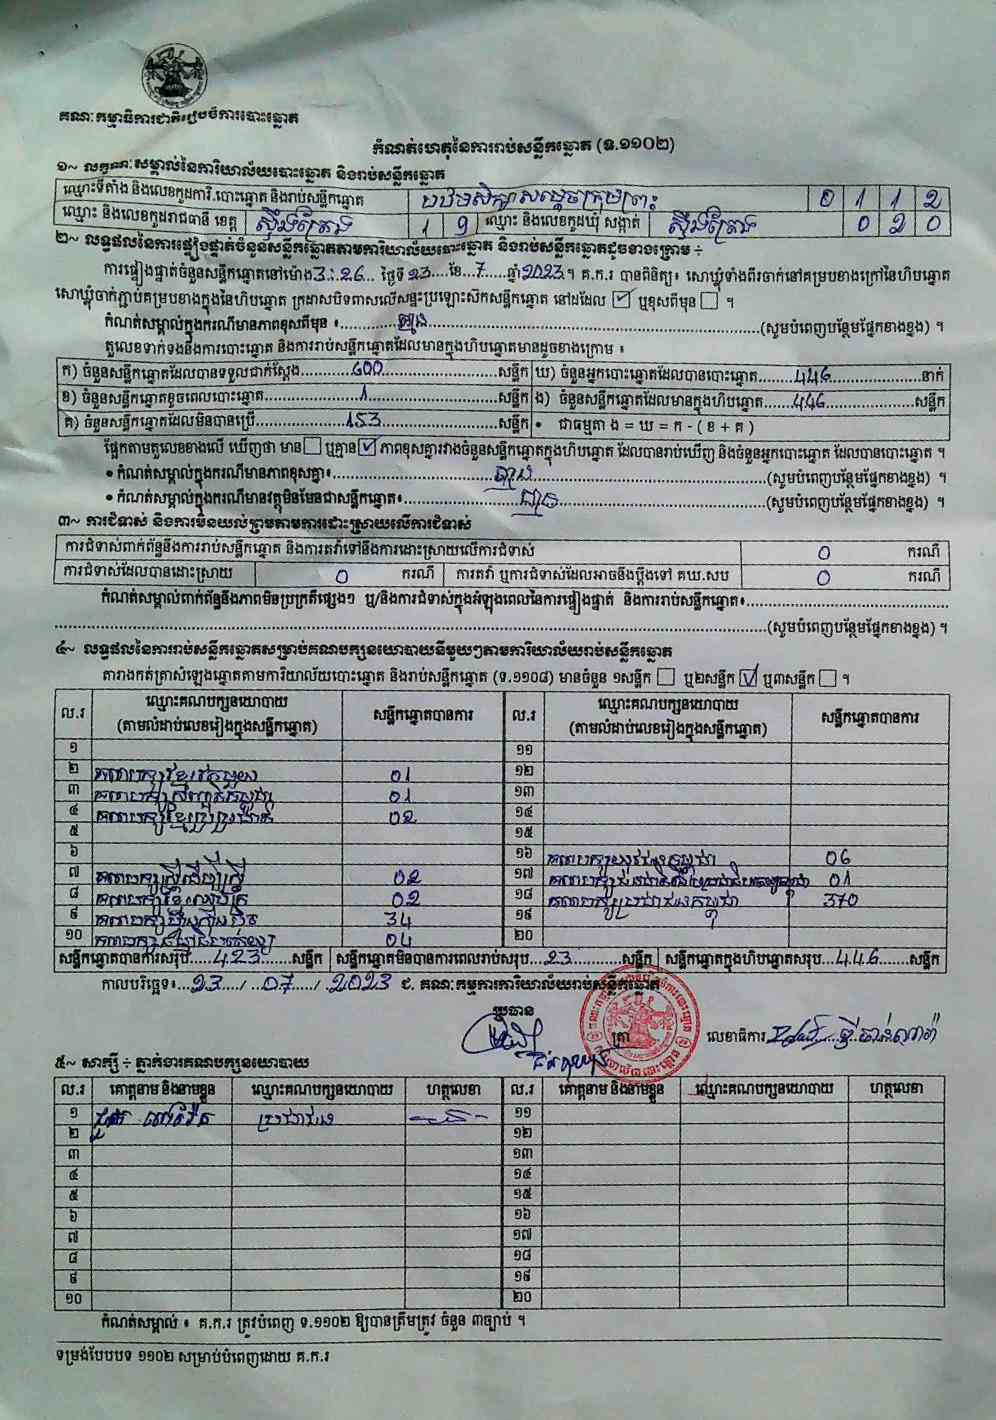 គណៈកម្មាធិការជាតិរៀបចំការបោះឆ្នោត
កំណត់ហេតុនៃការរាប់សន្លឹកឆ្នោត (ទ.១១០២)
១~ លក្ខណៈសម្គាល់នៃការិយាល័យបោះឆ្នោត និងរាប់សន្លឹកឆ្នោត
ឈ្មោះទីតាំង និងលេខកូដការិ.បោះឆ្នោត និងរាប់សន្លឹកឆ្នោត 0 1 1 2
ឈ្មោះ និងលេខកូដរាជធានី ខេត្ត ស្ទឹងត្រែង 1 9 ឈ្មោះ និងលេខកូដឃុំ សង្កាត់ ស្ទឹងត្រែង 0 2 0
២~ លទ្ធផលនៃការផ្ទៀងផ្ទាត់ចំនួនសន្លឹកឆ្នោតតាមការិយាល័យបោះឆ្នោត និងរាប់សន្លឹកឆ្នោតដូចខាងក្រោម ÷
ការផ្ទៀងផ្ទាត់ចំនួនសន្លឹកឆ្នោតនៅម៉ោង 3:26 ថ្ងៃទី 23 ខែ 7 ឆ្នាំ 2023 ។ គ.ក.រ បានពិនិត្យ៖ សោឃ្លុំទាំងពីរចាក់នៅគម្របខាងក្រៅនៃហិបឆ្នោត
សោឃ្លុំចាក់ភ្ជាប់គម្របខាងក្នុងនៃហិបឆ្នោត ក្រដាសបិទពាសលើសន្ទះប្រឡោះសឹកសន្លឹកឆ្នោត នៅដដែល ☑ ឬខុសពីមុន ☐ ។
កំណត់សម្គាល់ក្នុងករណីមានភាពខុសពីមុន ៖ គ្មាន (សូមបំពេញបន្ថែមផ្នែកខាងខ្នង) ។
តួលេខទាក់ទងនឹងការបោះឆ្នោត និងការរាប់សន្លឹកឆ្នោតដែលមានក្នុងហិបឆ្នោតមានដូចខាងក្រោម ៖
ក) ចំនួនសន្លឹកឆ្នោតដែលបានទទួលជាក់ស្តែង 600 សន្លឹក ឃ) ចំនួនអ្នកបោះឆ្នោតដែលបានបោះឆ្នោត 446 នាក់
ខ) ចំនួនសន្លឹកឆ្នោតខូចពេលបោះឆ្នោត 1 សន្លឹក ង) ចំនួនសន្លឹកឆ្នោតដែលមានក្នុងហិបឆ្នោត 446 សន្លឹក
គ) ចំនួនសន្លឹកឆ្នោតដែលមិនបានប្រើ 153 សន្លឹក • ជាធម្មតា ង = ឃ = ក - ( ខ + គ )
ផ្អែកតាមតួលេខខាងលើ ឃើញថា មាន ☐ ឬគ្មាន ☑ ភាពខុសគ្នារវាងចំនួនសន្លឹកឆ្នោតក្នុងហិបឆ្នោត ដែលបានរាប់ឃើញ និងចំនួនអ្នកបោះឆ្នោត ដែលបានបោះឆ្នោត ។
• កំណត់សម្គាល់ក្នុងករណីមានភាពខុសគ្នា៖ គ្មាន (សូមបំពេញបន្ថែមផ្នែកខាងខ្នង) ។
• កំណត់សម្គាល់ក្នុងករណីមានវត្ថុមិនមែនជាសន្លឹកឆ្នោត៖ គ្មាន (សូមបំពេញបន្ថែមផ្នែកខាងខ្នង) ។
៣~ ការជំទាស់ និងការមិនយល់ព្រមតាមការដោះស្រាយលើការជំទាស់
ការជំទាស់ពាក់ព័ន្ធនឹងការរាប់សន្លឹកឆ្នោត និងការតវ៉ាទៅនឹងការដោះស្រាយលើការជំទាស់ 0 ករណី
ការជំទាស់ដែលបានដោះស្រាយ 0 ករណី ការតវ៉ា ឬការជំទាស់ដែលអាចនឹងប្តឹងទៅ គឃ.សប 0 ករណី
កំណត់សម្គាល់ពាក់ព័ន្ធនឹងភាពមិនប្រក្រតីផ្សេងៗ ឬ/និងការជំទាស់ក្នុងអំឡុងពេលនៃការផ្ទៀងផ្ទាត់ និងការរាប់សន្លឹកឆ្នោត៖
(សូមបំពេញបន្ថែមផ្នែកខាងខ្នង) ។
៤~ លទ្ធផលនៃការរាប់សន្លឹកឆ្នោតសម្រាប់គណបក្សនយោបាយនីមួយៗតាមការិយាល័យរាប់សន្លឹកឆ្នោត
តារាងកត់ត្រាសំឡេងឆ្នោតតាមការិយាល័យបោះឆ្នោត និងរាប់សន្លឹកឆ្នោត (ទ.១១០៨) មានចំនួន ១សន្លឹក ☐ ឬ២សន្លឹក ☑ ឬ៣សន្លឹក ☐ ។
ល.រ ឈ្មោះគណបក្សនយោបាយ (តាមលំដាប់លេខរៀងក្នុងសន្លឹកឆ្នោត) សន្លឹកឆ្នោតបានការ ល.រ ឈ្មោះគណបក្សនយោបាយ (តាមលំដាប់លេខរៀងក្នុងសន្លឹកឆ្នោត) សន្លឹកឆ្នោតបានការ
១ ១១
២ គណបក្សខ្មែរតែមួយ 01 ១២
៣ គណបក្ស 01 ១៣
៤ គណបក្សខ្មែរ 02 ១៤
៥ ១៥
៦ ១៦ គណបក្ស កម្ពុជា 06
៧ គណបក្សស្ត្រីដើម្បីស្ត្រី 02 ១៧ គណបក្ស 01
៨ គណបក្សខ្មែរ 02 ១៨ គណបក្សប្រជាជនកម្ពុជា 370
៩ គណបក្សហ្វ៊ុនស៊ិនប៉ិច 34 ១៩
១០ គណបក្ស 04 ២០
សន្លឹកឆ្នោតបានការសរុប 423 សន្លឹក សន្លឹកឆ្នោតមិនបានការពេលរាប់សរុប 23 សន្លឹក សន្លឹកឆ្នោតក្នុងហិបឆ្នោតសរុប 446 សន្លឹក
កាលបរិច្ឆេទ៖ 23 / 07 / 2023 ជ. គណៈកម្មការការិយាល័យរាប់សន្លឹកឆ្នោត
ប្រធាន ត្រា លេខាធិការ
៥~ សាក្សី ÷ ភ្នាក់ងារគណបក្សនយោបាយ
ល.រ គោត្តនាម និងនាមខ្លួន ឈ្មោះគណបក្សនយោបាយ ហត្ថលេខា ល.រ គោត្តនាម និងនាមខ្លួន ឈ្មោះគណបក្សនយោបាយ ហត្ថលេខា
១ ប្រជាជន ១១
២ ១២
៣ ១៣
៤ ១៤
៥ ១៥
៦ ១៦
៧ ១៧
៨ ១៨
៩ ១៩
១០ ២០
កំណត់សម្គាល់ ៖ គ.ក.រ ត្រូវបំពេញ ទ.១១០២ ឱ្យបានត្រឹមត្រូវ ចំនួន ៣ច្បាប់ ។
ទម្រង់បែបបទ ១១០២ សម្រាប់បំពេញដោយ គ.ក.រ